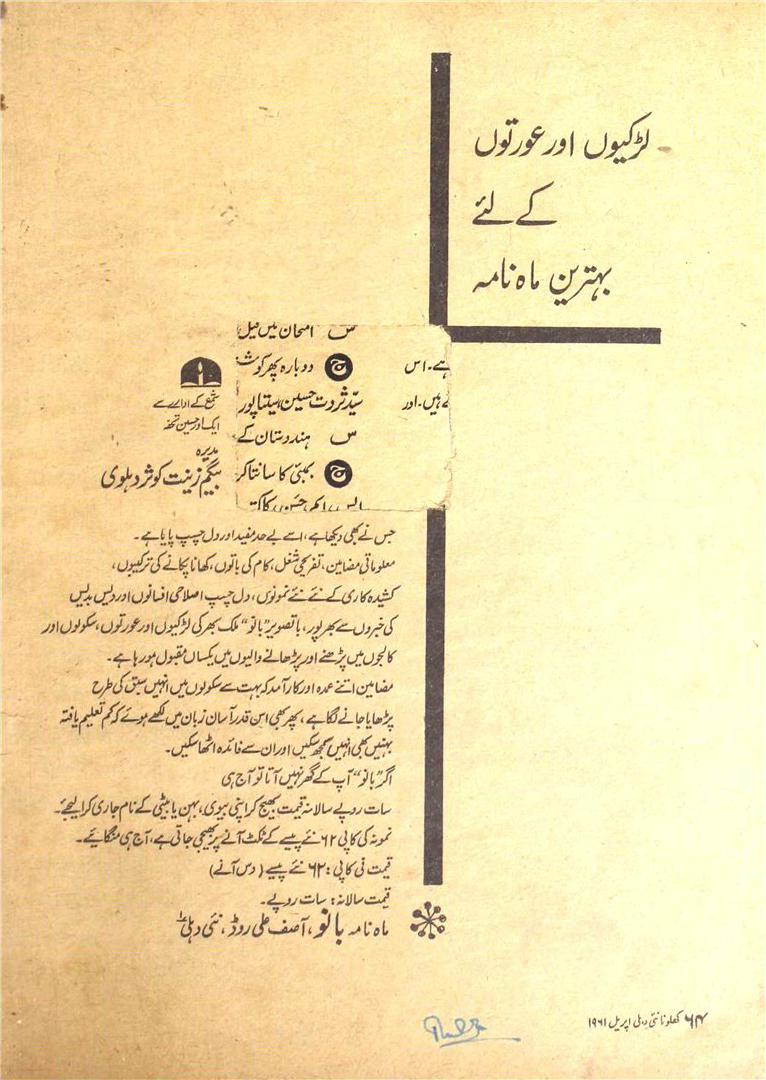 لڑکیوں اور عورتوں
کے لئے
بہترین ماہ نامہ
س امتحان میں فیل
ہے۔ اس
ج دوبارہ پھر کوش
ہیں۔ اور
سیّد ثروت حسین، سیتاپور
س ہندوستان کے
ج بمبئی کا سانتاکر
شمع کے ادارے سے
ایک اور حسین تحفہ
مدیرہ
بیگم زینت کوثر دہلوی
جس نے بھی دیکھا ہے، اسے بے حد مفید اور دل چسپ پایا ہے۔
معلوماتی مضامین، تفریحی شغل، کام کی باتوں، کھانا پکانے کی ترکیبوں،
کشیدہ کاری کے نئے نئے نمونوں، دل چسپ اصلاحی افسانوں اور دیس بدیس
کی خبروں سے بھرپور، باتصویر "بانو" ملک بھر کی لڑکیوں اور عورتوں، سکولوں اور
کالجوں میں پڑھنے اور پڑھانے والیوں میں یکساں مقبول ہو رہا ہے۔
مضامین اتنے عمدہ اور کارآمد کہ بہت سے سکولوں میں انہیں سبق کی طرح
پڑھایا جانے لگا ہے، پھر بھی اس قدر آسان زبان میں لکھے ہوئے کہ کم تعلیم یافتہ
بہنیں بھی انہیں سمجھ سکیں اور ان سے فائدہ اٹھا سکیں۔
اگر "بانو" آپ کے گھر نہیں آتا تو آج ہی
سات روپے سالانہ قیمت بھیج کر اپنی بیوی، بہن یا بیٹی کے نام جاری کرا لیجئے۔
نمونہ کی کاپی ۶۲ نئے پیسے کے ٹکٹ آنے پر بھیجی جاتی ہے، آج ہی منگائیے۔
قیمت فی کاپی: ۶۲ نئے پیسے (دس آنے)
قیمت سالانہ: سات روپے۔
ماہ نامہ بانو، آصف علی روڈ، نئی دہلی ۱
۶۴ کھلونا نئی دہلی اپریل ۱۹۶۱